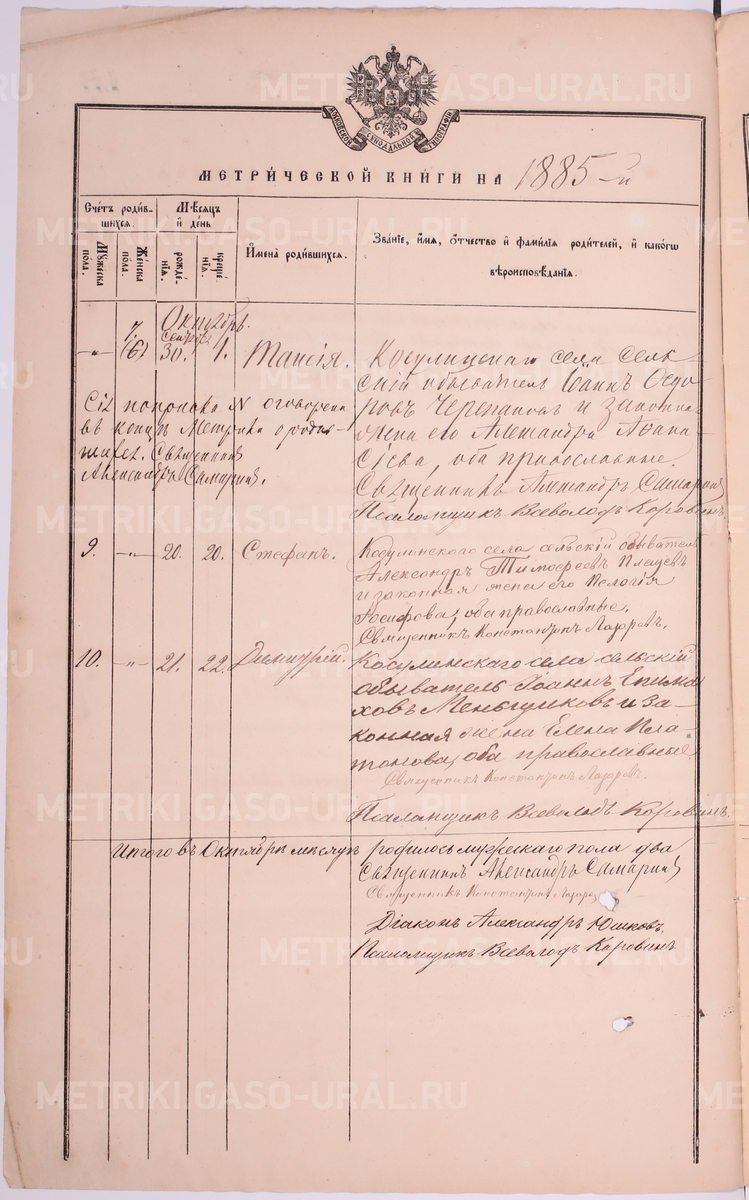 METRIKI.GASO-URAL.RU
МОСКОВСКОЙ СѴНОДАЛЬНОЙ ТИПОГРАФІИ
МЕТРИ́ЧЕСКОЙ КНИ́ГИ НА 1885-й
Счетъ роди́вшихся.
Мꙋ́жеска по́ла.
Же́нска по́ла.
Мѣ́сяцъ и҆ де́нь
рожде́нїѧ.
креще́нїѧ.
И҆мена̀ роди́вшихся.
Зва́нїе, и҆́мѧ, ѻ҆́тчество и҆ фами́лїѧ роди́телей, и҆ како́гѡ вѣроисповѣ́данїѧ.
Октябрь.
7. Сентября
-„- (6) 30. 1. Таисія. Косулинскаго села сель
скій обыватель Іоаннъ Ѳедо
ровъ Черепановъ и законная
жена его Александра Аѳана
сіева, оба православные.
Священникъ Александръ Самаринъ
Псаломщикъ Всеволодъ Коровинъ.
Сія поправка № оговорена
въ концѣ Метрики о родив-
шихся. Священникъ
Александръ Самаринъ.
9. -„- 20. 20. Стефанъ. Косулинскаго села сельскій обыватель
Александръ Тимофеевъ
и законная жена его Пелагія
Іосифова, оба православные.
Священникъ Константинъ Лазаревъ.
10. -„- 21. 22. Димитрій. Косулинскаго села сельскій
обыватель Іоаннъ Епима
ховъ Меньшиковъ и за
конная жена Елена Пла-
тонова, оба православные.
Священникъ Константинъ Лазаревъ.
Псаломщикъ Всеволодъ Коровинъ.
Итого въ Октябрѣ мѣсяцѣ родилось мужескаго пола два
Священникъ Александръ Самаринъ
Священникъ Константинъ Лазаревъ
Діаконъ Александръ Юшковъ.
Псаломщикъ Всеволодъ Коровинъ